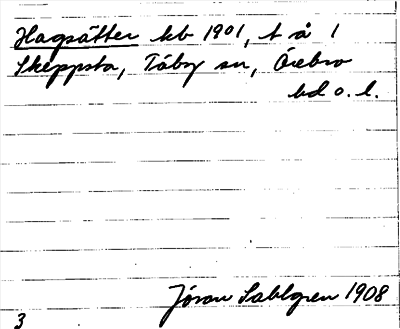 Hagsätter kb 1901, t å 1
Skeppsta, Täby sn, Örebro
hd o. l.
Jöran Sahlgren 1908
3